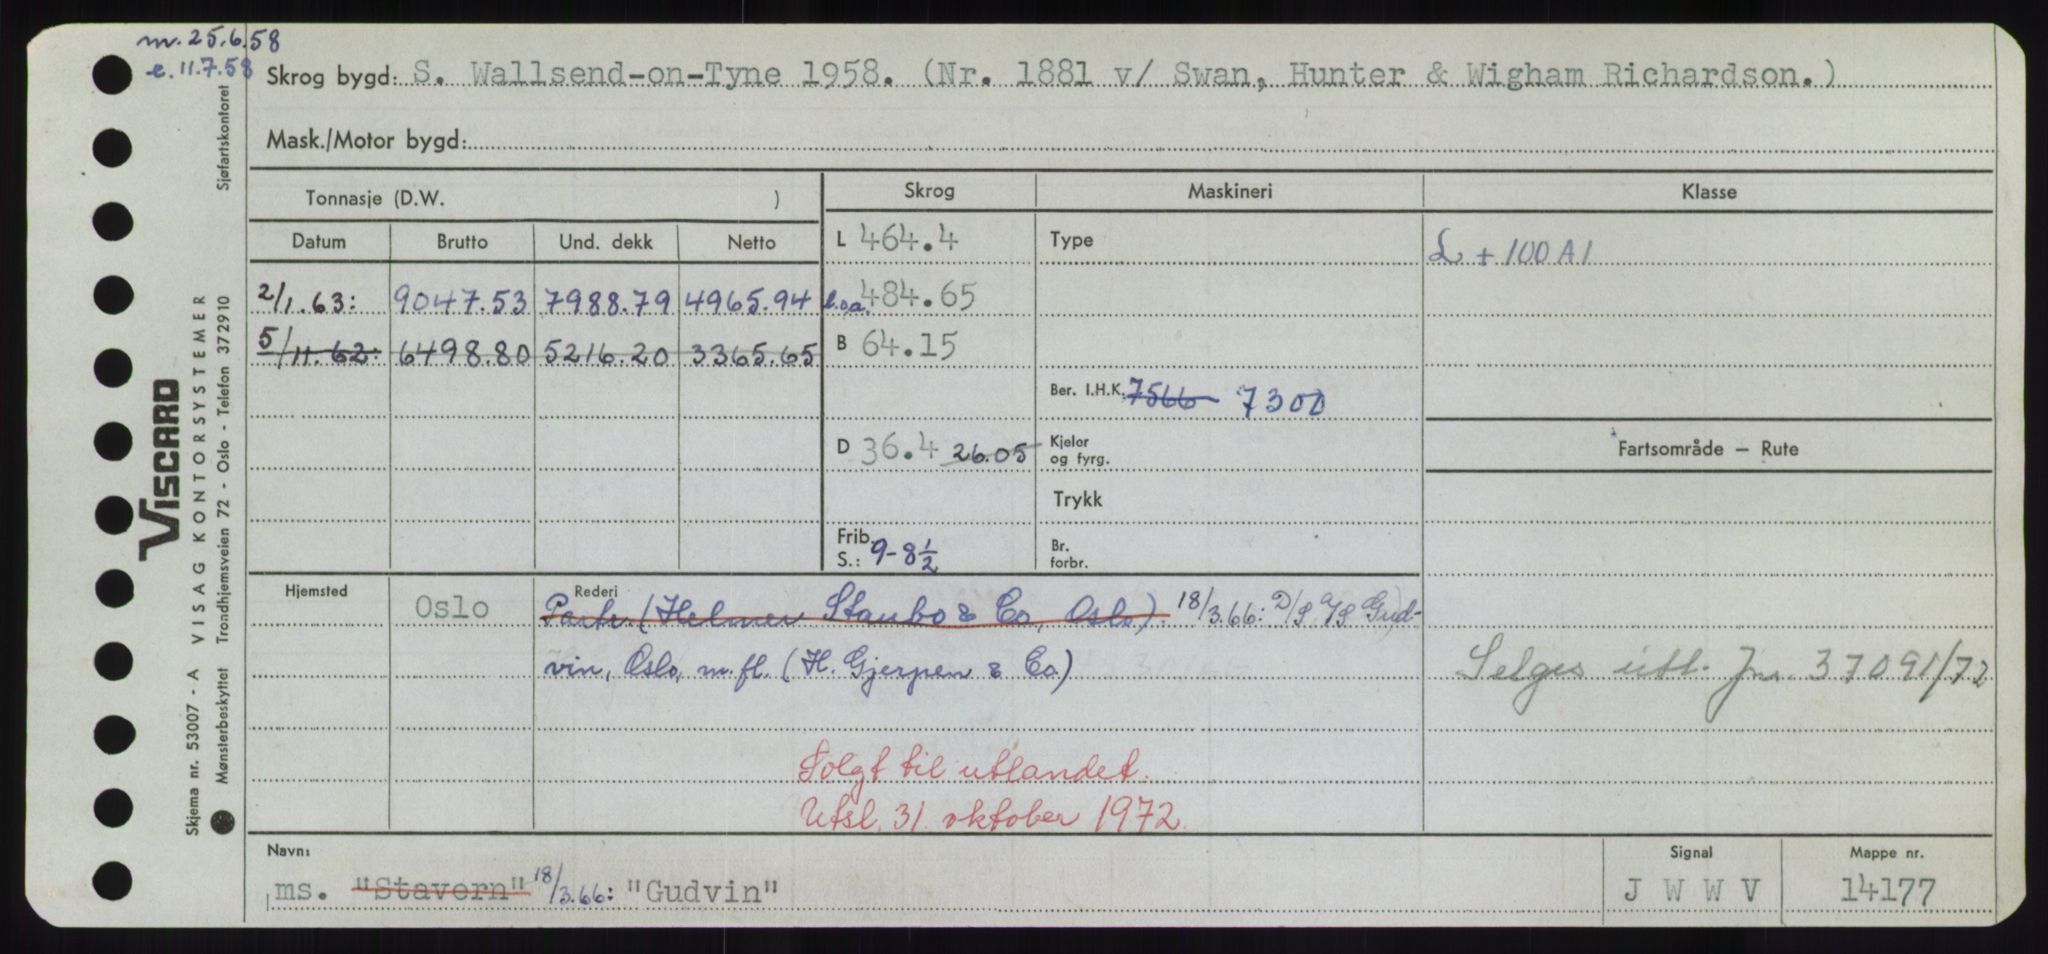 m. 25.6.58
e. 11.7.58
Skrog bygd: S. Wallsend-on-Tyne 1958. (Nr. 1881 v/ Swan, Hunter & Wigham Richardson.)
Mask./Motor bygd:
Tonnasje (D.W. )
Skrog
Maskineri
Klasse
Datum Brutto Und. dekk Netto
L 464.4
Type
L + 100 A 1
2/1.63: 9047.53 7988.79 4965.94
l.o.a. 484.65
5/11.62: 6498.80 5216.20 3365.65
B 64.15
Ber. I.H.K. 7566 7300
D 36.4 26.05
Kjeler
og fyrg.
Fartsområde — Rute
Trykk
Frib.
S.: 9-8½
Br.
forbr.
Hjemsted
Oslo
Rederi
Partr. (Helmer Staubo & Co, Oslo). 18/3.66: D/S A/S Gud-
vin, Oslo, m.fl. (H. Gjerpen & Co.)
Selges utl. Jnr. 37091/72
Solgt til utlandet.
Utsl. 31. oktober 1972.
Navn:
ms. "Stavern" 18/3.66: "Gudvin"
Signal
J W W V
Mappe nr.
14177
Skjema nr. 53007 - A VISAG KONTORSYSTEMER
VISCARD
Mønsterbeskyttet Trondhjemsveien 72 - Oslo - Telefon 372910 Sjøfartskontoret